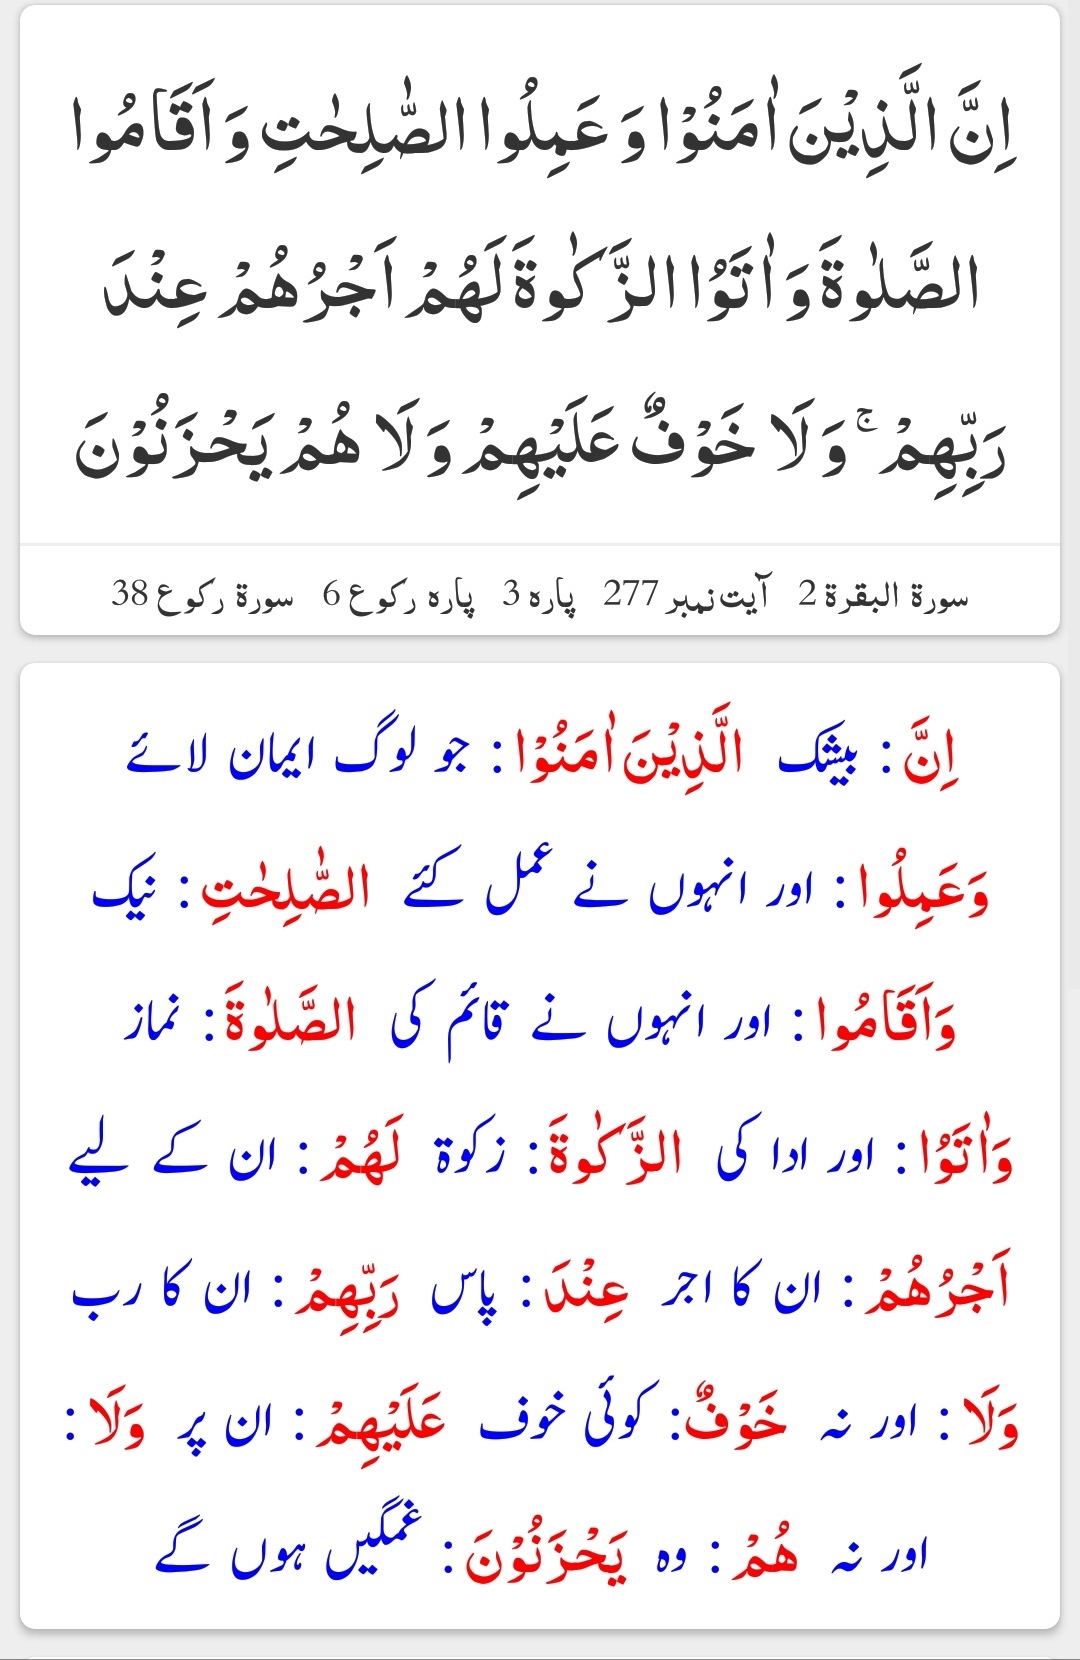 اِنَّ الَّذِيْنَ اٰمَنُوْا وَ عَمِلُوا الصّٰلِحٰتِ وَ اَقَامُوا
الصَّلٰوةَ وَ اٰتَوُا الزَّكٰوةَ لَهُمْ اَجْرُهُمْ عِنْدَ
رَبِّهِمْ ۚ وَ لَا خَوْفٌ عَلَيْهِمْ وَ لَا هُمْ يَحْزَنُوْنَ
سورۃ البقرۃ 2 آیت نمبر 277 پارہ 3 پارہ رکوع 6 سورۃ رکوع 38
اِنَّ : بیشک الَّذِيْنَ اٰمَنُوْا : جو لوگ ایمان لائے
وَعَمِلُوا : اور انہوں نے عمل کئے الصّٰلِحٰتِ : نیک
وَاَقَامُوا : اور انہوں نے قائم کی الصَّلٰوةَ : نماز
وَاٰتَوُا : اور ادا کی الزَّكٰوةَ : زکوۃ لَهُمْ : ان کے لیے
اَجْرُهُمْ : ان کا اجر عِنْدَ : پاس رَبِّهِمْ : ان کا رب
وَلَا : اور نہ خَوْفٌ : کوئی خوف عَلَيْهِمْ : ان پر وَلَا :
اور نہ هُمْ : وہ يَحْزَنُوْنَ : غمگیں ہوں گے